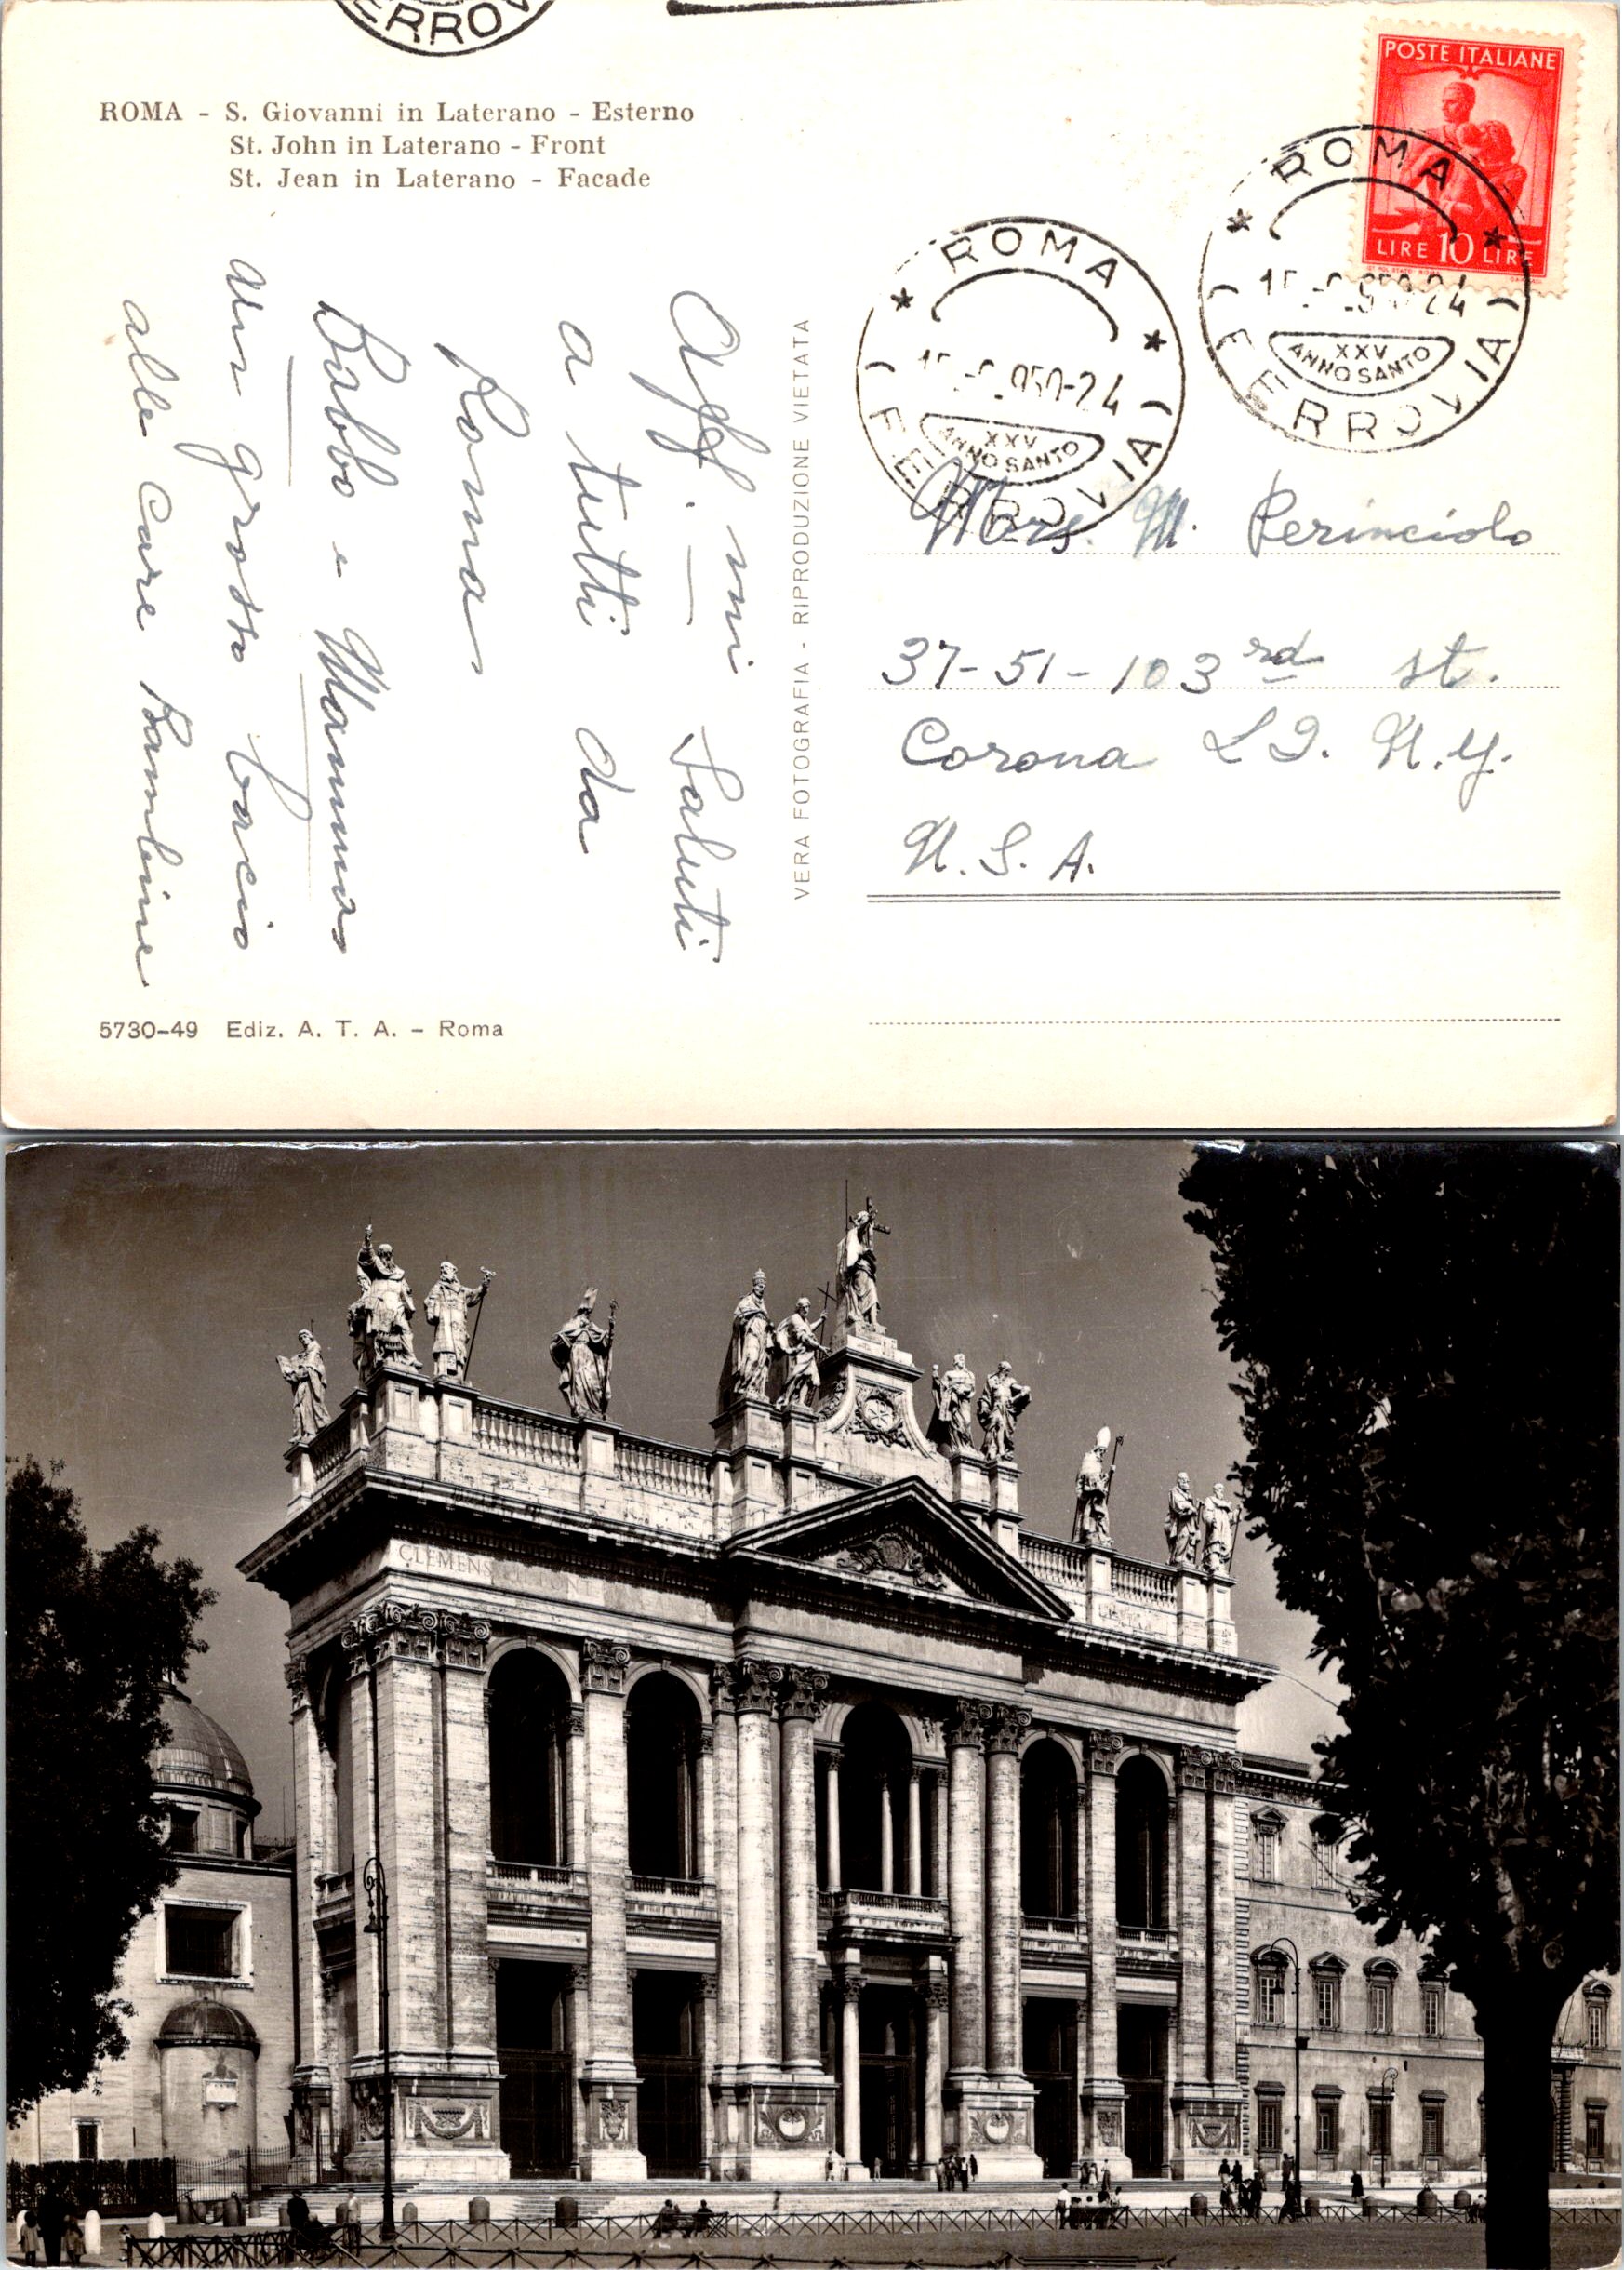 ERROV
ROMA - S. Giovanni in Laterano - Esterno
St. John in Laterano - Front
St. Jean in Laterano - Facade
POSTE ITALIANE
LIRE 10 LIRE
ROMA
950-24
XXV
ANNO SANTO
(FERROVIA)
ROMA
950-24
XXV
ANNO SANTO
(FERROVIA)
Aff.mi Saluti
a tutti da
Roma
Babbo e Mamma
un grosso bacio
alle care Bambine
VERA FOTOGRAFIA - RIPRODUZIONE VIETATA
Mrs. M. Perinciolo
37-51-103rd st.
Corona L I. N.Y.
U.S.A.
5730-49 Ediz. A. T. A. - Roma
CLEMENS